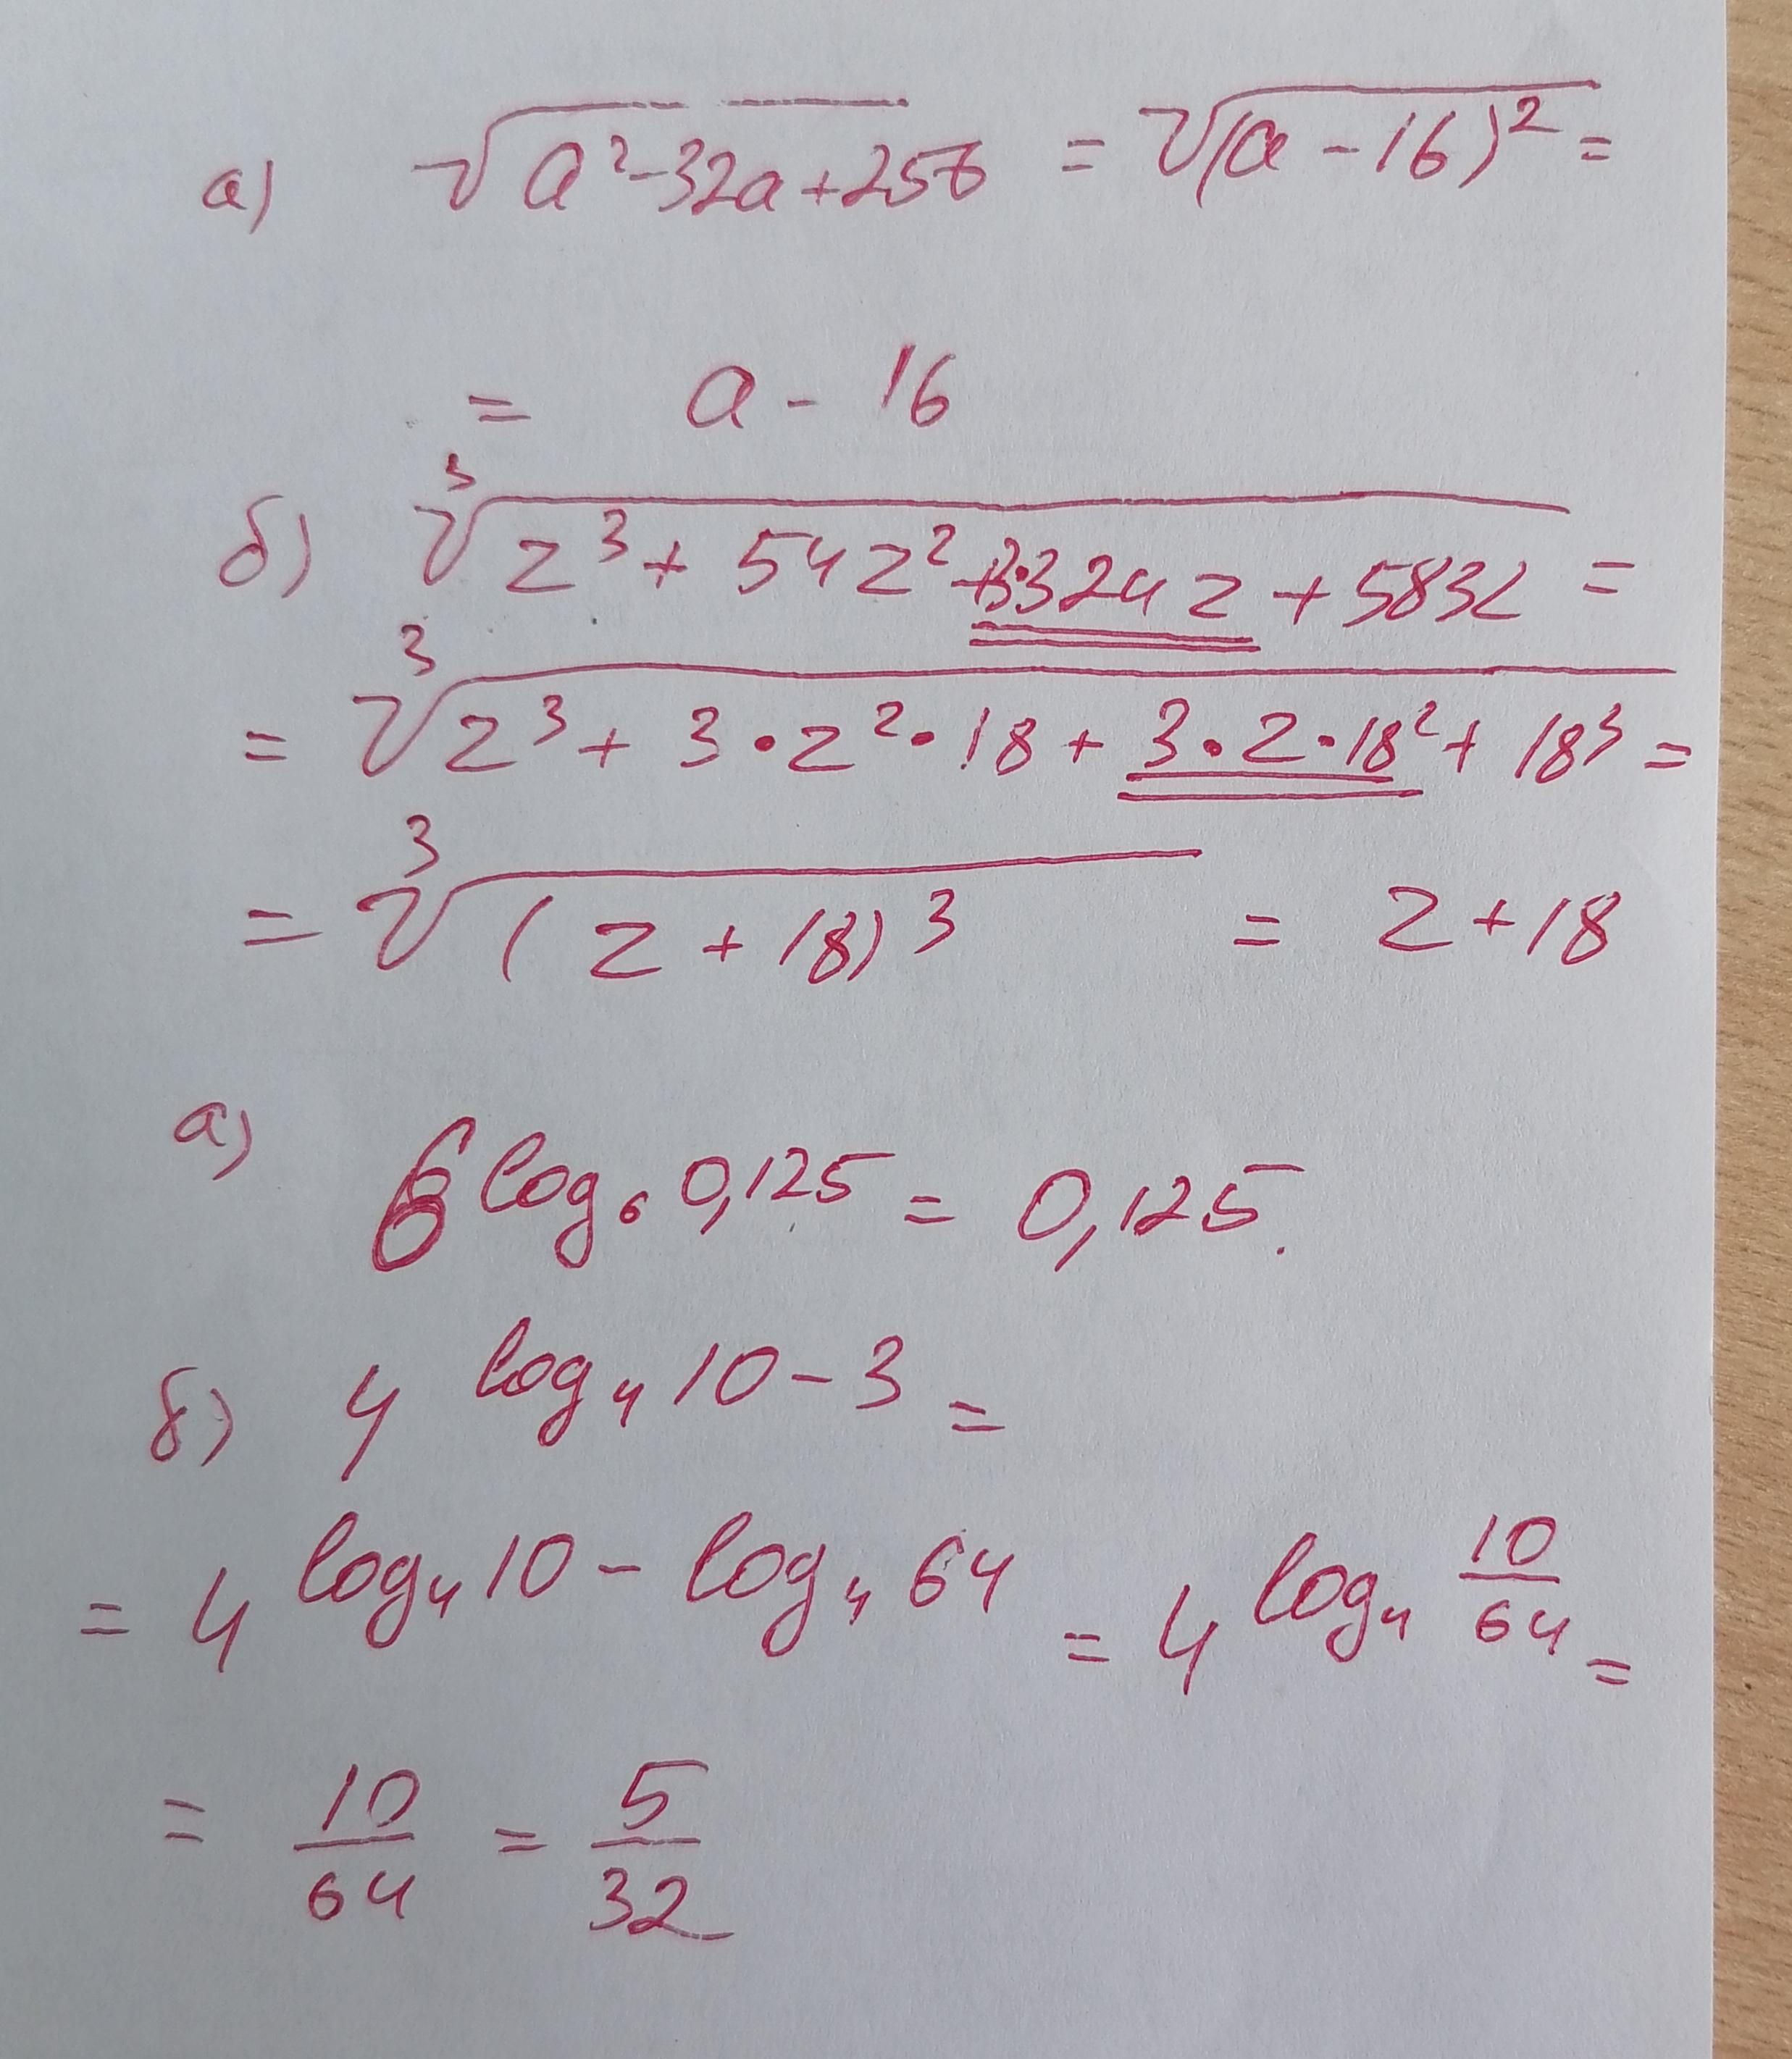 а) √a²-32a+256 = √(a-16)² =
= a - 16
б) ³√z³ + 54z² + 3·324z + 5832 =
= ³√z³ + 3·z²·18 + 3·z·18² + 18³ =
= ³√(z + 18)³ = z + 18
а) 6^log₆ 0,125 = 0,125.
б) 4^log₄ 10 - 3 =
= 4^log₄ 10 - log₄ 64 = 4^log₄ 10/64 =
= 10/64 = 5/32